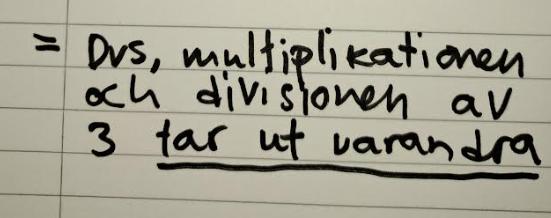 = Dvs, multiplikationen
och divisionen av
3 tar ut varandra